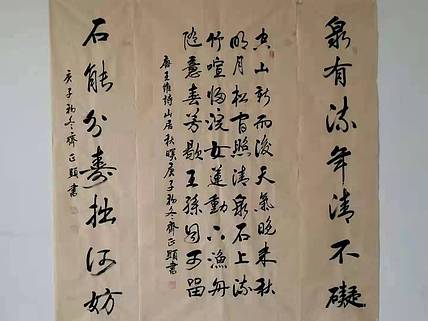 泉有流年清不礙
空山新雨後天氣晚來秋
明月松間照清泉石上流
竹喧歸浣女蓮動下漁舟
隨意春芳歇王孫自可留
唐王維詩山居秋暝庚子初冬齊正書
石能分壽拙何妨
庚子初冬齊正書